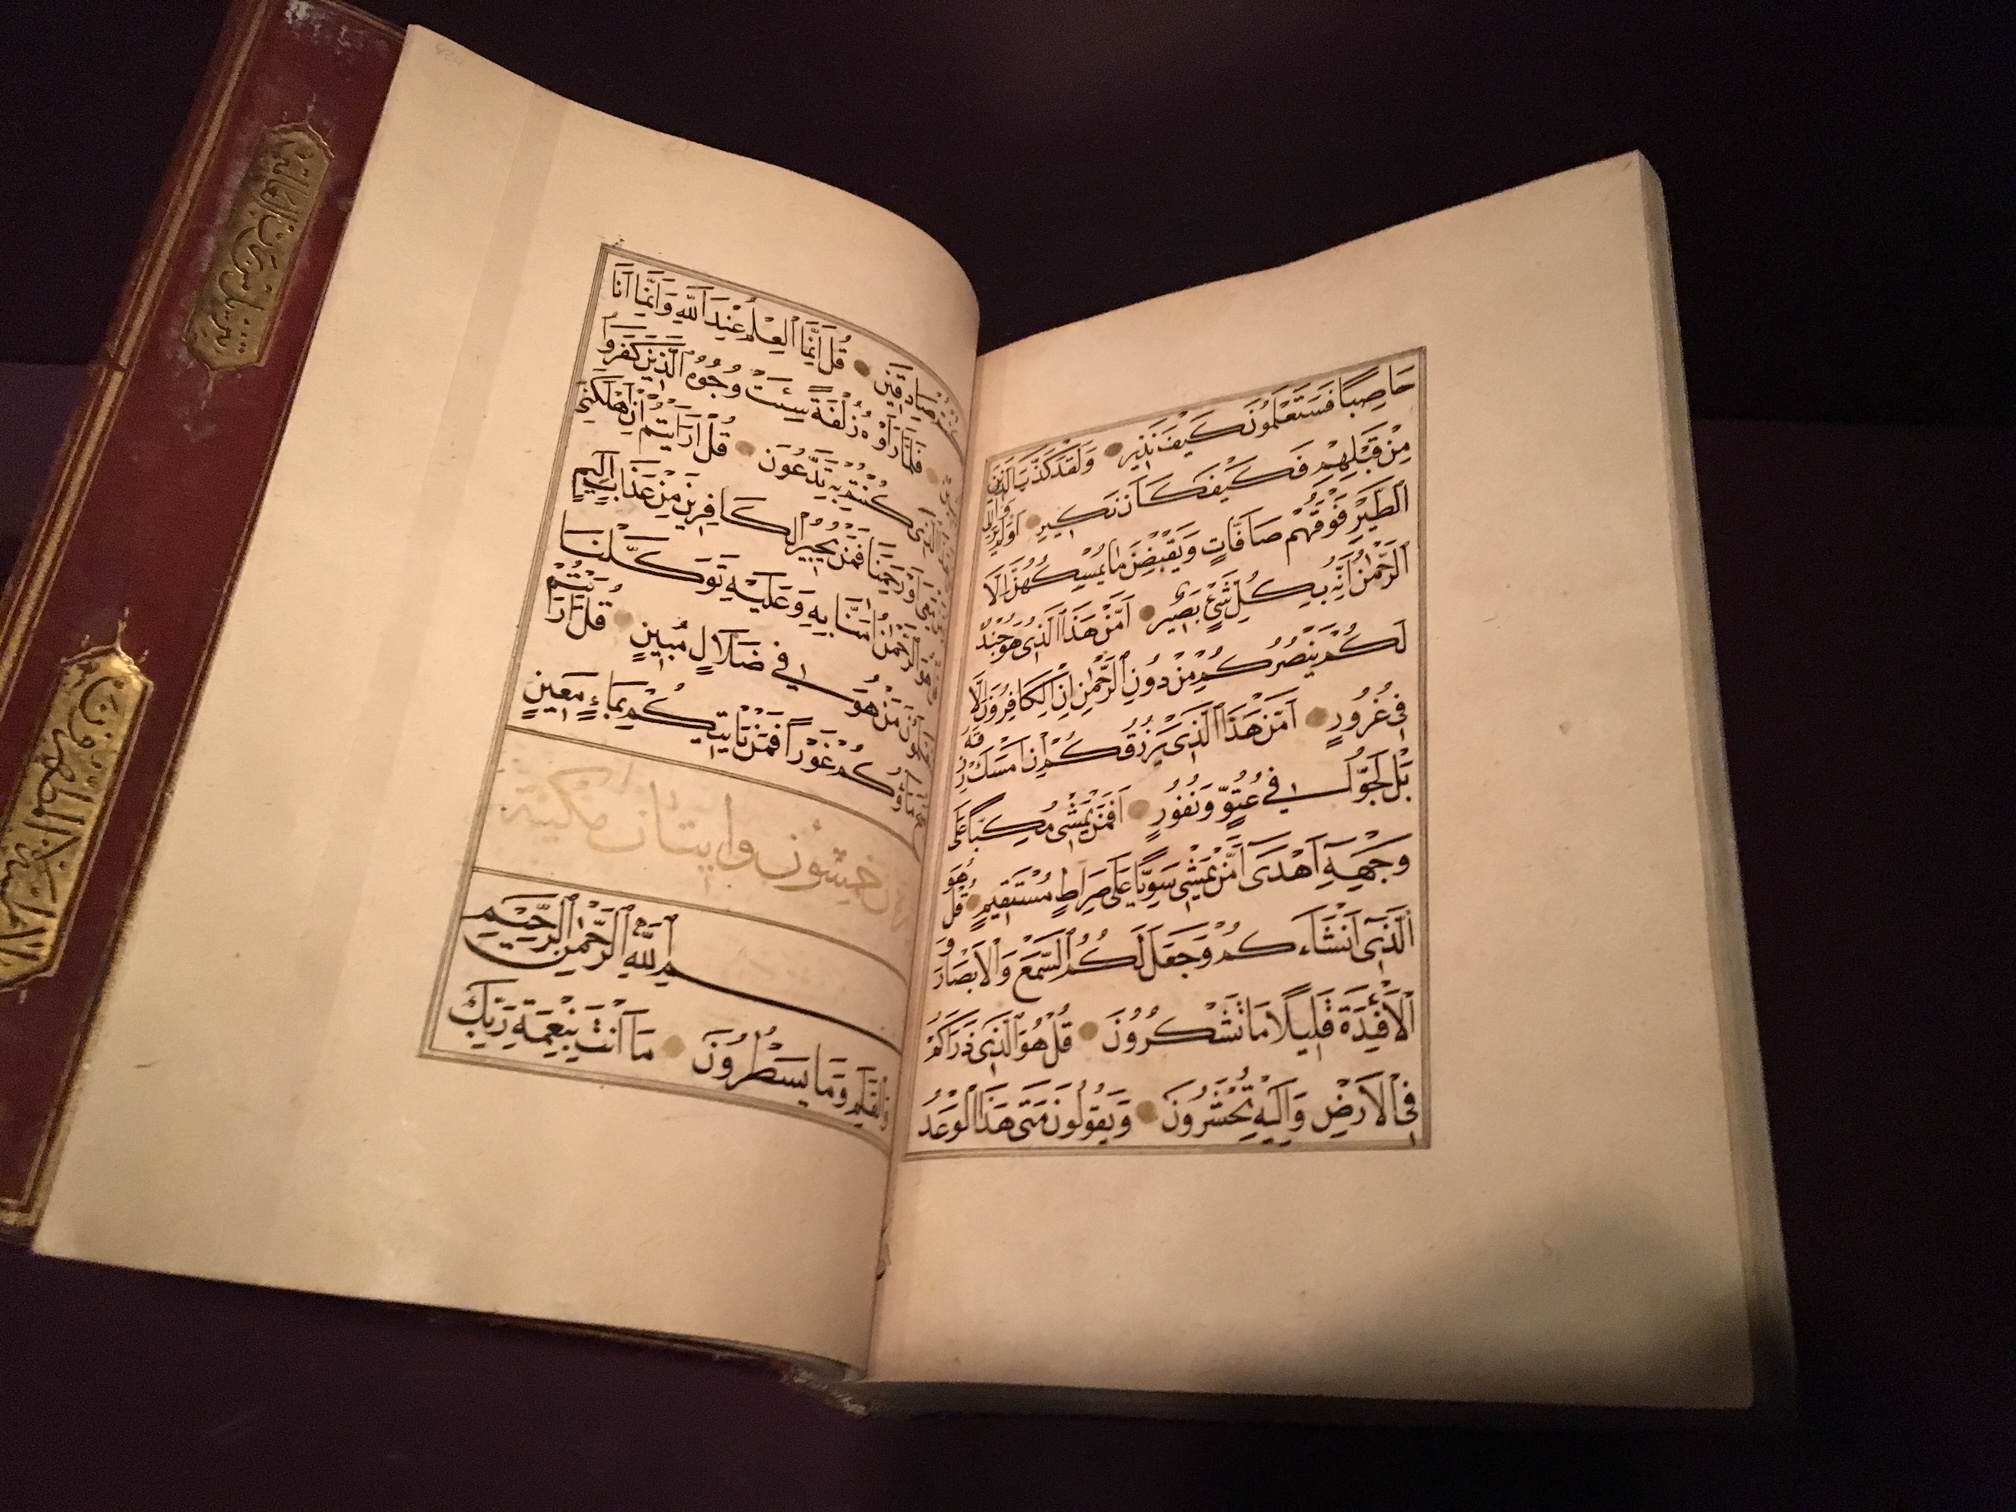 حَاصِبًا فَسَتَعْلَمُونَ كَيْفَ نَذِيرِ وَلَقَدْ كَذَّبَ الَّذِينَ
مِنْ قَبْلِهِمْ فَكَيْفَ كَانَ نَكِيرِ اَوَلَمْ يَرَوْا اِلَى
الطَّيْرِ فَوْقَهُمْ صَافَّاتٍ وَيَقْبِضْنَ مَا يُمْسِكُهُنَّ اِلَّا
الرَّحْمٰنُ اِنَّهُ بِكُلِّ شَيْءٍ بَصِيرٌ اَمَّنْ هٰذَا الَّذِى هُوَ جُنْدٌ
لَكُمْ يَنْصُرُكُمْ مِنْ دُونِ الرَّحْمٰنِ اِنِ الْكَافِرُونَ اِلَّا
فِى غُرُورٍ اَمَّنْ هٰذَا الَّذِى يَرْزُقُكُمْ اِنْ اَمْسَكَ رِزْقَهُ
بَلْ لَجُّوا فِى عُتُوٍّ وَنُفُورٍ اَفَمَنْ يَمْشِى مُكِبًّا عَلَى
وَجْهِهِ اَهْدَى اَمَّنْ يَمْشِى سَوِيًّا عَلَى صِرَاطٍ مُسْتَقِيمٍ قُلْ هُوَ
الَّذِى اَنْشَاَكُمْ وَجَعَلَ لَكُمُ السَّمْعَ وَالْاَبْصَارَ وَ
الْاَفْئِدَةَ قَلِيلًا مَا تَشْكُرُونَ قُلْ هُوَ الَّذِى ذَرَاَكُمْ
فِى الْاَرْضِ وَاِلَيْهِ تُحْشَرُونَ وَيَقُولُونَ مَتَى هٰذَا الْوَعْدُ
صَادِقِينَ قُلْ اِنَّمَا الْعِلْمُ عِنْدَ اللّٰهِ وَاِنَّمَا اَنَا
فَلَمَّا رَاَوْهُ زُلْفَةً سِيئَتْ وُجُوهُ الَّذِينَ كَفَرُوا
الَّذِى كُنْتُمْ بِهِ تَدَّعُونَ قُلْ اَرَاَيْتُمْ اِنْ اَهْلَكَنِىَ
اَوْ رَحِمَنَا فَمَنْ يُجِيرُ الْكَافِرِينَ مِنْ عَذَابٍ اَلِيمٍ
هُوَ الرَّحْمٰنُ اٰمَنَّا بِهِ وَعَلَيْهِ تَوَكَّلْنَا
مَنْ هُوَ فِى ضَلَالٍ مُبِينٍ قُلْ اَرَاَيْتُمْ
مَاؤُكُمْ غَوْرًا فَمَنْ يَاْتِيكُمْ بِمَاءٍ مَعِينٍ
خمسون وايتان مكية
بِسْمِ اللّٰهِ الرَّحْمٰنِ الرَّحِيمِ
وَالْقَلَمِ وَمَا يَسْطُرُونَ مَا اَنْتَ بِنِعْمَةِ رَبِّكَ
تنزيل من رب العالمين
لا يمسه الا المطهرون